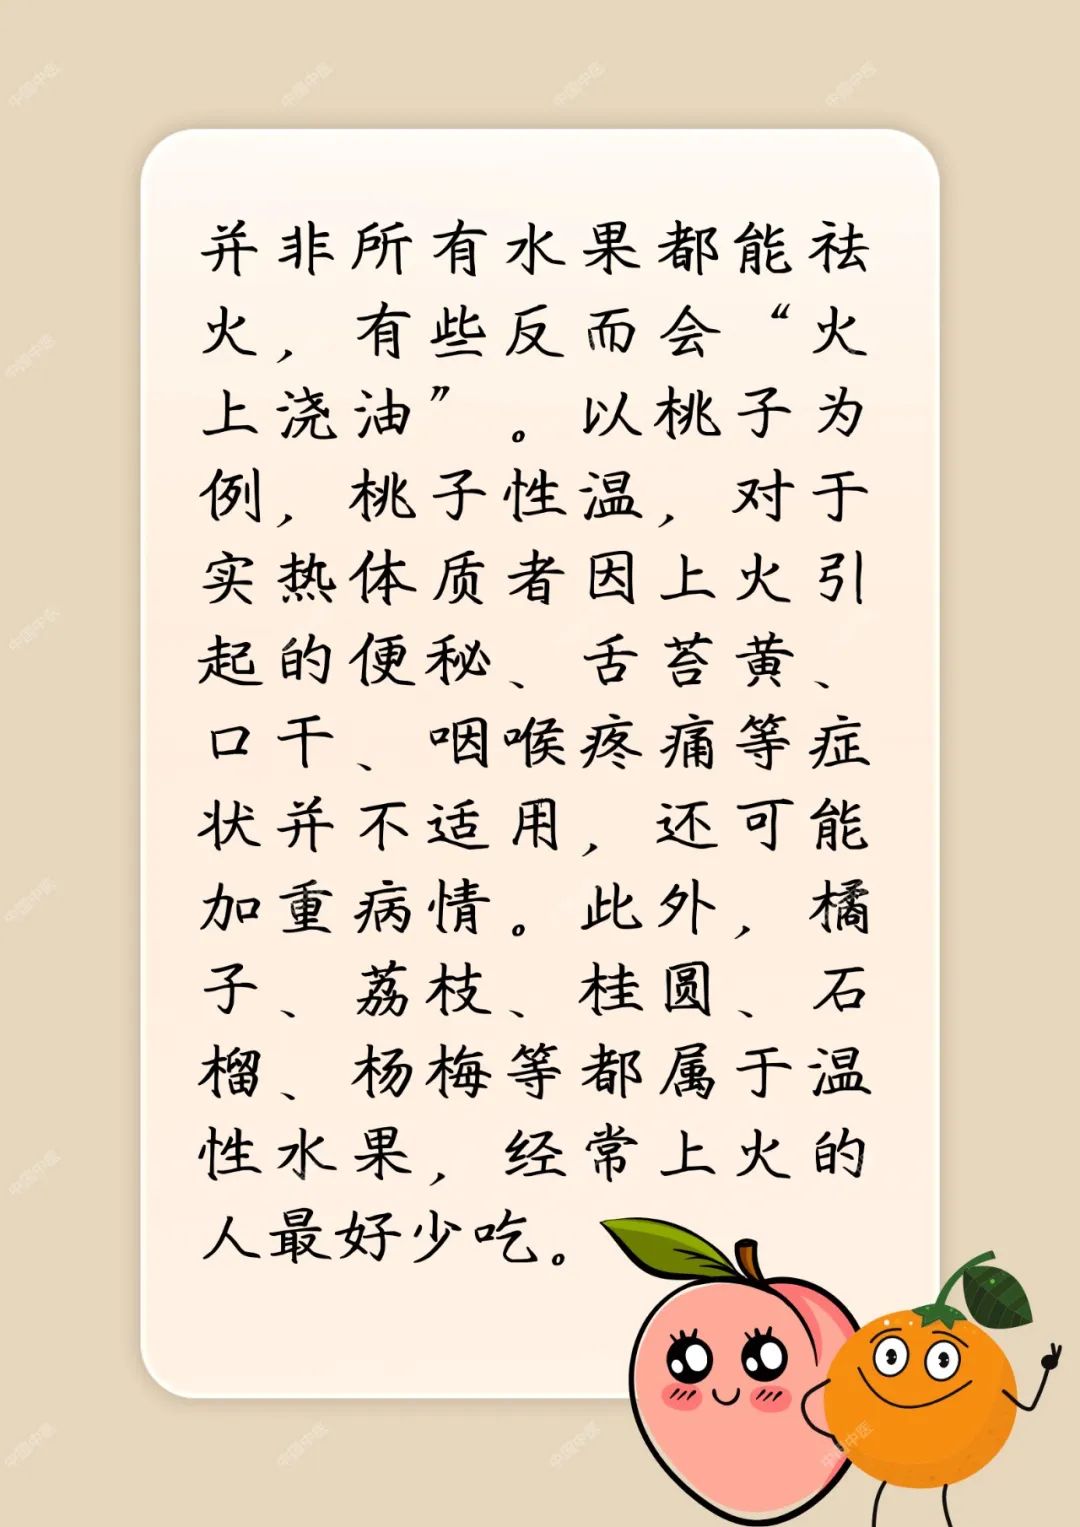 并非所有水果都能祛
火，有些反而会“火
上浇油”。以桃子为
例，桃子性温，对于
实热体质者因上火引
起的便秘、舌苔黄、
口干、咽喉疼痛等症
状并不适用，还可能
加重病情。此外，橘
子、荔枝、桂圆、石
榴、杨梅等都属于温
性水果，经常上火的
人最好少吃。
中国中医